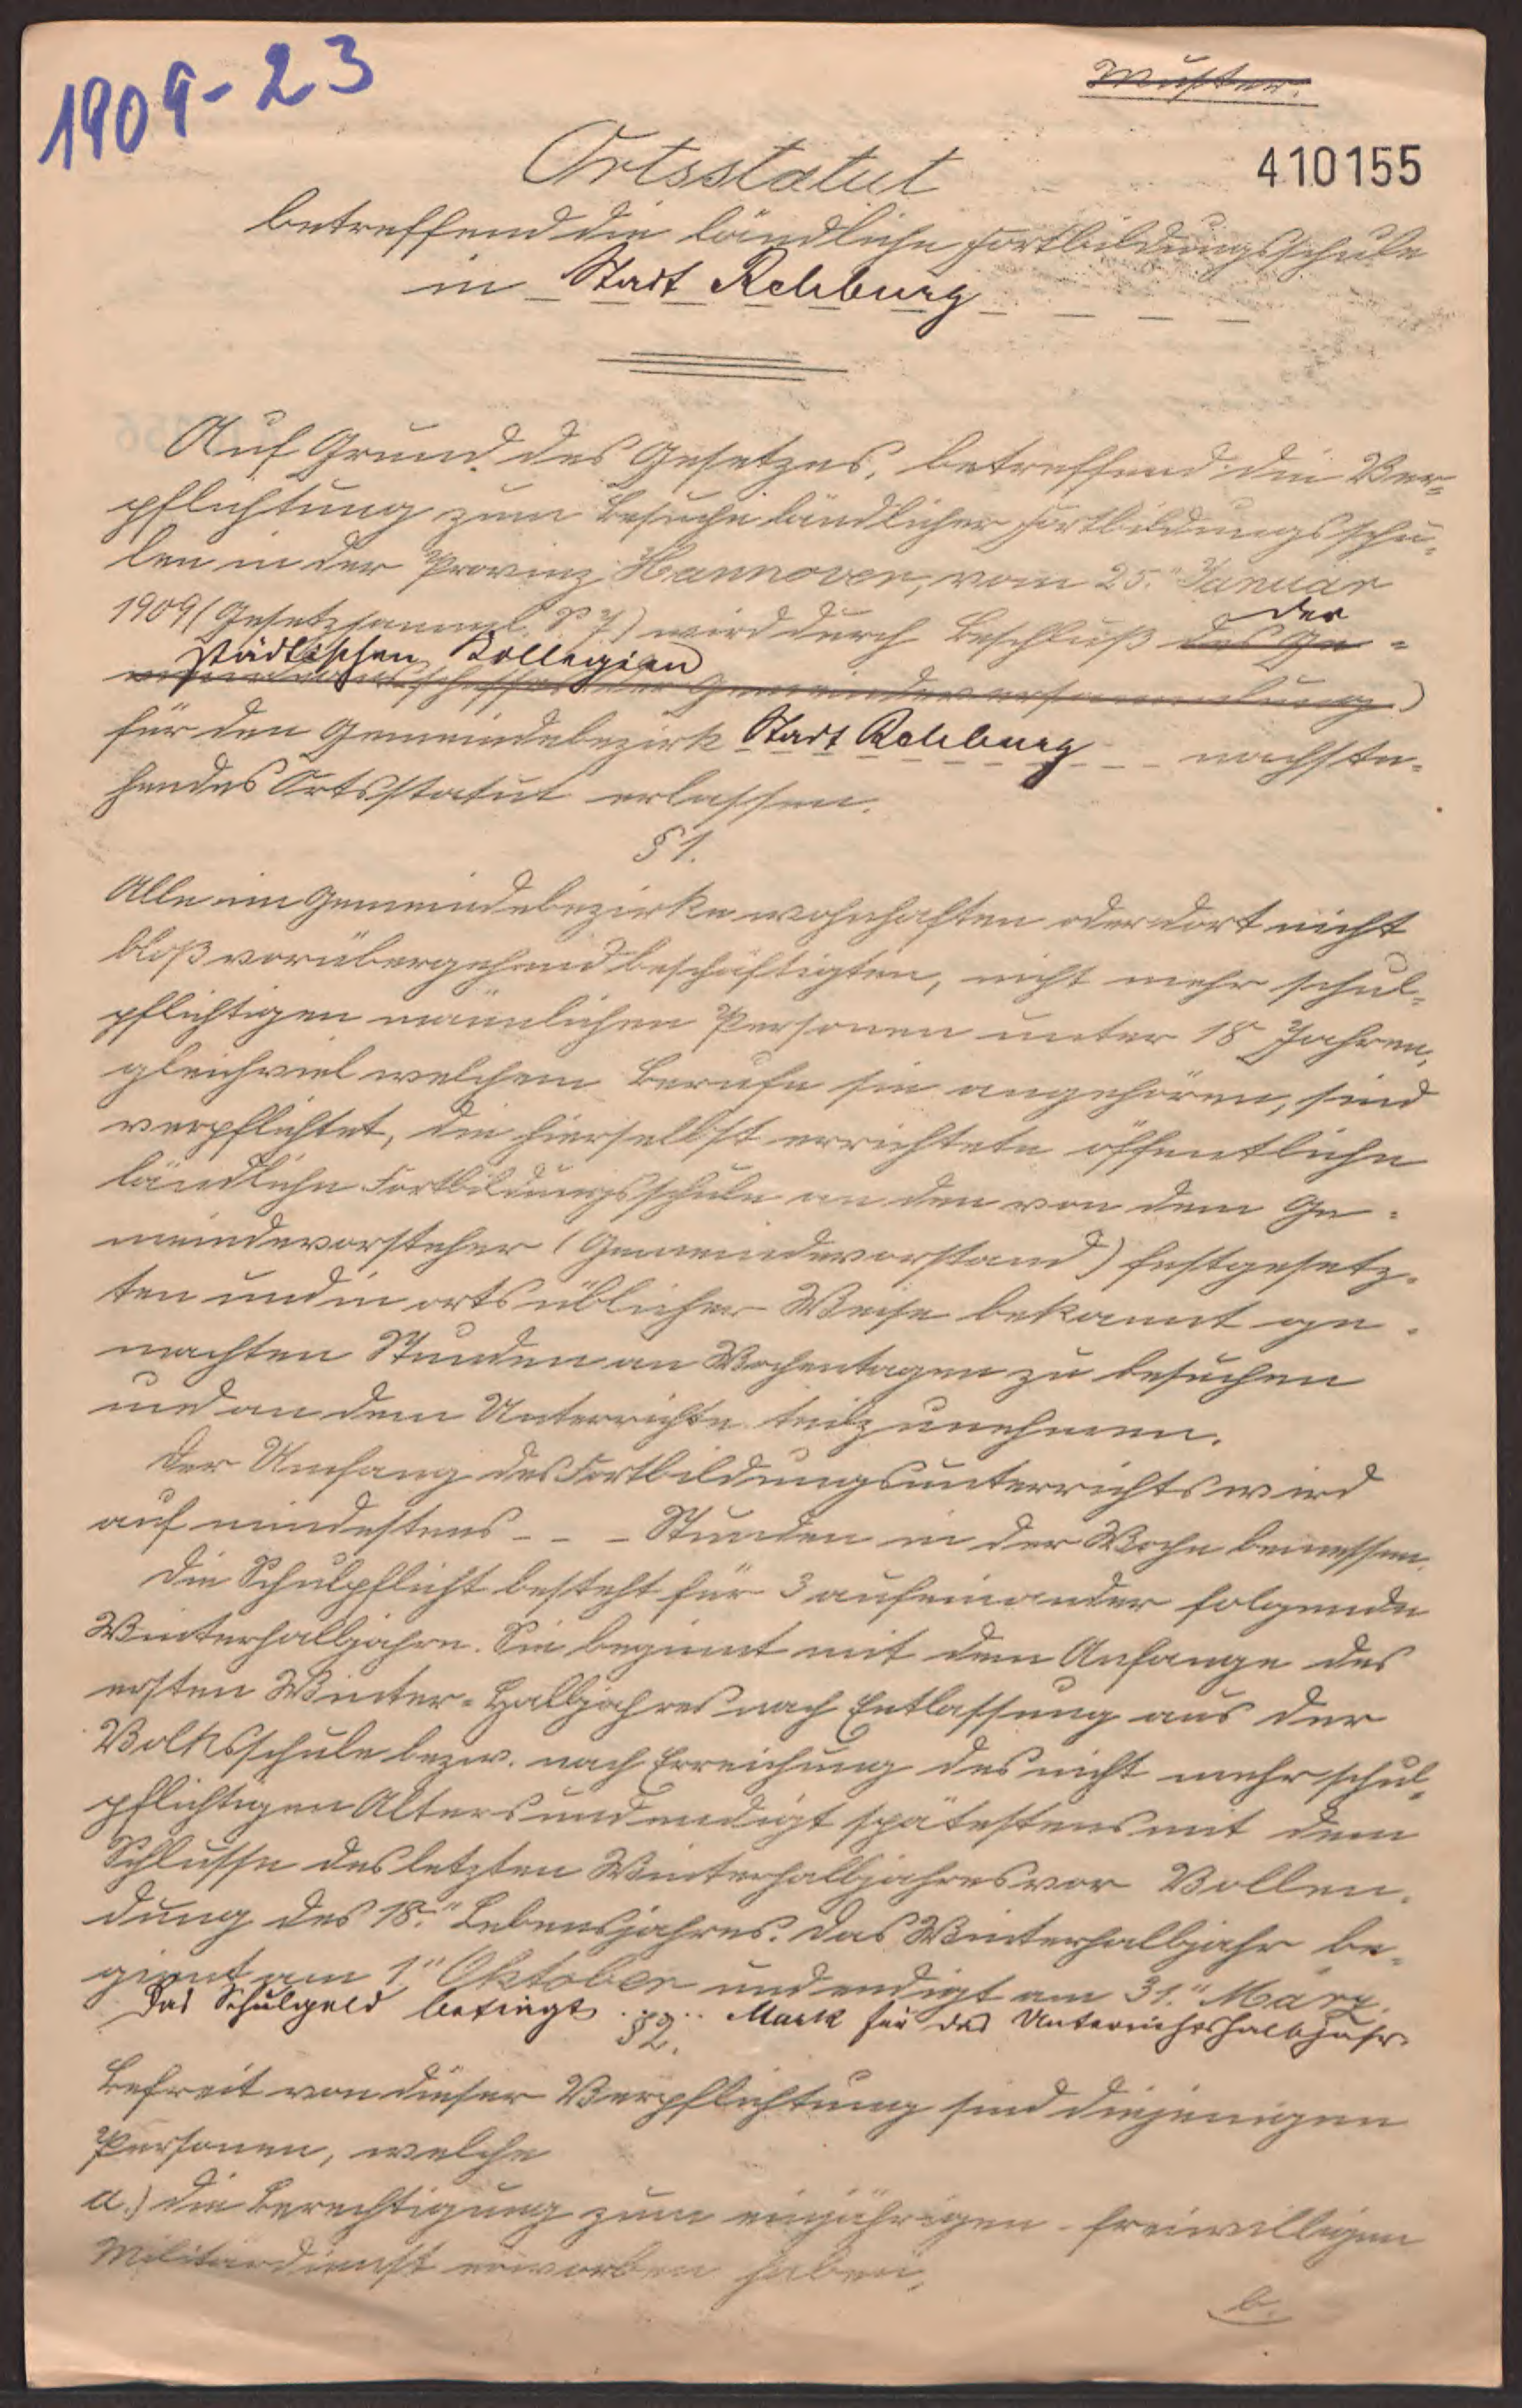 1909-23
Muster.
410155
Ortsstatut
betreffend die ländliche Fortbildungsschule
in Stadt Rehburg
Auf Grund des Gesetzes, betreffend die Ver-
pflichtung zum Besuche ländlicher Fortbildungsschu-
len in der Provinz Hannover, vom 25. Januar
1909 (Gesetzsamml. S. 7) wird durch Beschluß des Ge-
der
städtischen Kollegien
meindeausschusses der Gemeindeversammlung)
für den Gemeindebezirk Stadt Rehburg nachste-
hendes Ortsstatut erlassen.
§ 1.
Alle im Gemeindebezirke wohnhaften oder dort nicht
bloß vorübergehend beschäftigten, nicht mehr schul-
pflichtigen männlichen Personen unter 18 Jahren,
gleichviel welchem Berufe sie angehören, sind
verpflichtet, die hierselbst errichtete öffentliche
ländliche Fortbildungsschule an den von dem Ge-
meindevorsteher (Gemeindevorstand) festgesetz-
ten und in ortsüblicher Weise bekannt ge-
machten Stunden an Wochentagen zu besuchen
und an dem Unterrichte teilzunehmen.
Der Umfang des Fortbildungsunterrichts wird
auf mindestens - - - Stunden in der Woche bemessen.
Die Schulpflicht besteht für 3 aufeinander folgende
Winterhalbjahre. Sie beginnt mit dem Anfange des
ersten Winter-Halbjahres nach Entlassung aus der
Volksschule bezw. nach Erreichung des nicht mehr schul-
pflichtigen Alters und endigt spätestens mit dem
Schlusse des letzten Winterhalbjahres vor Vollen-
dung des 18. Lebensjahres. Das Winterhalbjahr be-
ginnt am 1. Oktober und endigt am 31. März.
Das Schulgeld beträgt ..... Mark für das Unterrichtshalbjahr.
§ 2.
Befreit von dieser Verpflichtung sind diejenigen
Personen, welche
a.) die Berechtigung zum einjährigen-freiwilligen
Militärdienst erworben haben,
b.